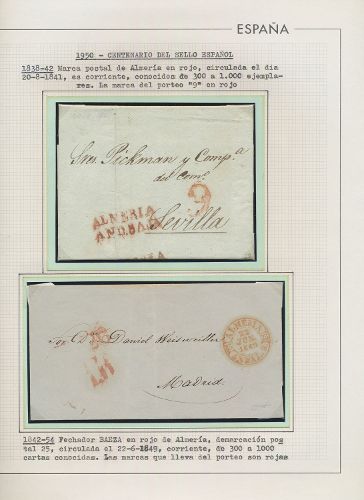 ESPAÑA
1950 - CENTENARIO DEL SELLO ESPAÑOL
1838-42 Marca postal de Almeria en rojo, circulada el dia
20-8-1841, es corriente, conocidos de 300 a 1.000 ejempla-
res. La marca del porteo "9" en rojo
Sres. Pickman y Comp.ª
del Com.º
9
ALMERIA
ANDBAXA
Sevilla
Sor. Dn. Daniel Weisweiller
ALMERIA
22
JUN
1849
Madrid.
1842-54 Fechador BAEZA en rojo de Almería, demarcación pos
tal 25, circulada el 22-6-1849, corriente, de 300 a 1000
cartas conocidas. Las marcas que lleva del porteo son rojas